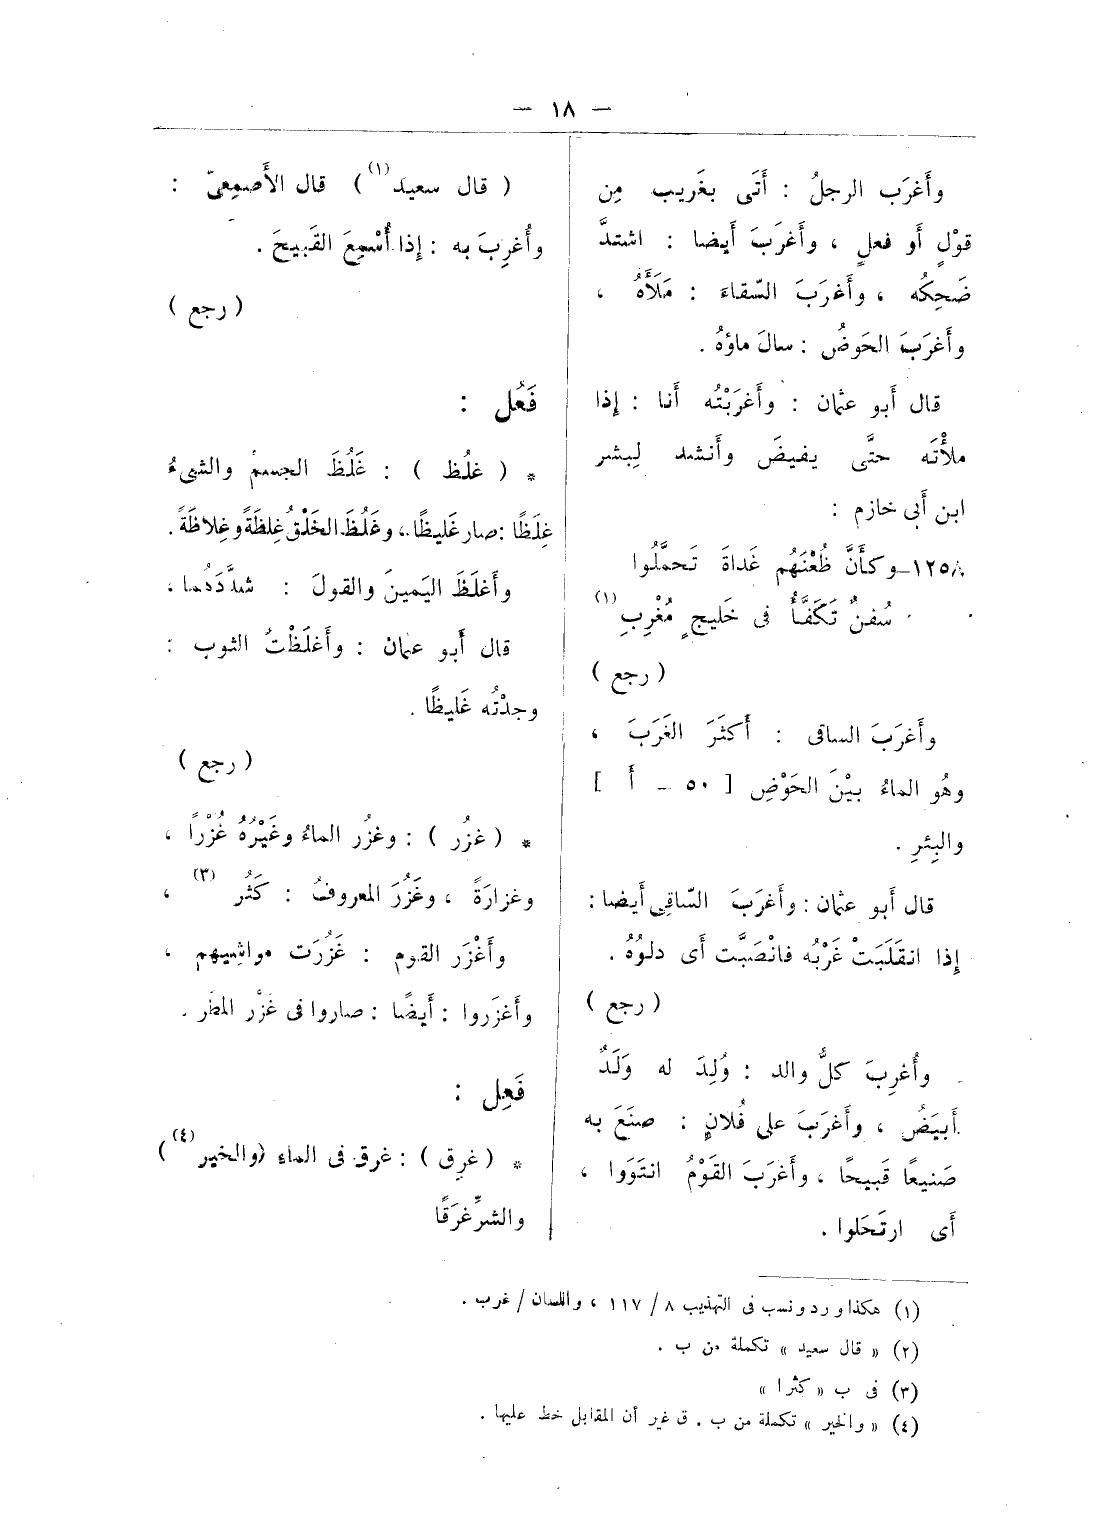 — ١٨ —
وأَغرَب الرجلُ : أَتَى بغَريب مِن
قوْلٍ أَو فعلٍ ، وأَغرَبَ أَيضا : اشتدَّ
ضَحِكُه ، وأَغرَبَ السّقاءَ : مَلَأَهُ ،
وأَغرَبَ الحَوضُ : سالَ ماؤهُ .
قال أَبو عثمان : وأَغرَبْتُه أَنا : إذا
ملأْتَه حتَّى يفيضَ وأَنشد لِبشر
ابن أَبى خازم :
١٢٥٨ـ وكأَنَّ ظُعْنَهُم غَداةَ تَحمَّلُوا
سُفنٌ تَكَفَّأُ فى خَليجٍ مُغْرِبِ (١)
( رجع )
وأَغرَبَ الساقى : أَكثَرَ الغَرَبَ ،
وهُو الماءُ بيْنَ الحَوْضِ [ ٥٠ - أَ ]
والبِئرِ .
قال أَبو عثمان : وأَغرَبَ السّاقِى أَيضا :
إذا انقَلَبَتْ غَرْبُه فانْصَبَّت أَى دلوُهُ .
( رجع )
وأُغرِبَ كلُّ والد : وُلِدَ له وَلَدٌ
أَبيَضُ ، وأَغرَبَ على فُلانٍ : صنَعَ به
صَنيعًا قَبيحًا ، وأَغرَبَ القَوْمُ انتَوَوا ،
أَى ارتَحَلوا .
( قال سعيد (١) ) قال الأَصمِعىّ :
وأُغرِبَ به : إذا أُسْمِعَ القَبيحَ .
( رجع )
فَعُل :
* ( غلُظ ) : غَلُظَ الجسمُ والشىءُ
غِلَظًا : صار غَليظًا ، وغَلُظَ الخَلْقُ غِلظَةً وغِلاظَةً .
وأَغلَظَ اليَمينَ والقولَ : شدَّدَهُما ،
قال أَبو عثمان : وأَغلَظْتُ الثوب :
وجدْتُه غَليظًا .
( رجع )
* ( غزُر ) : وغزُر الماءُ وغَيْرُهُ غُزْرًا ،
وغزارَةً ، وغَزُرَ المعروفُ : كَثُر (٣) ،
وأَغْزَر القوم : غَزُرَت مواشِيهم ،
وأَغزَروا : أَيضًا : صاروا فى غزْر المطر .
فَعِل :
* ( غرِق ) : غرق فى الماء (والخير (٤) )
والشرِّ غرَقًا
(١) هكذا ورد ونسب فى التهذيب ٨ / ١١٧ ، واللسان / غرب .
(٢) « قال سعيد » تكملة من ب .
(٣) فى ب « كثرا »
(٤) « والخير » تكملة من ب . ق غير أن المقابل خط عليها .